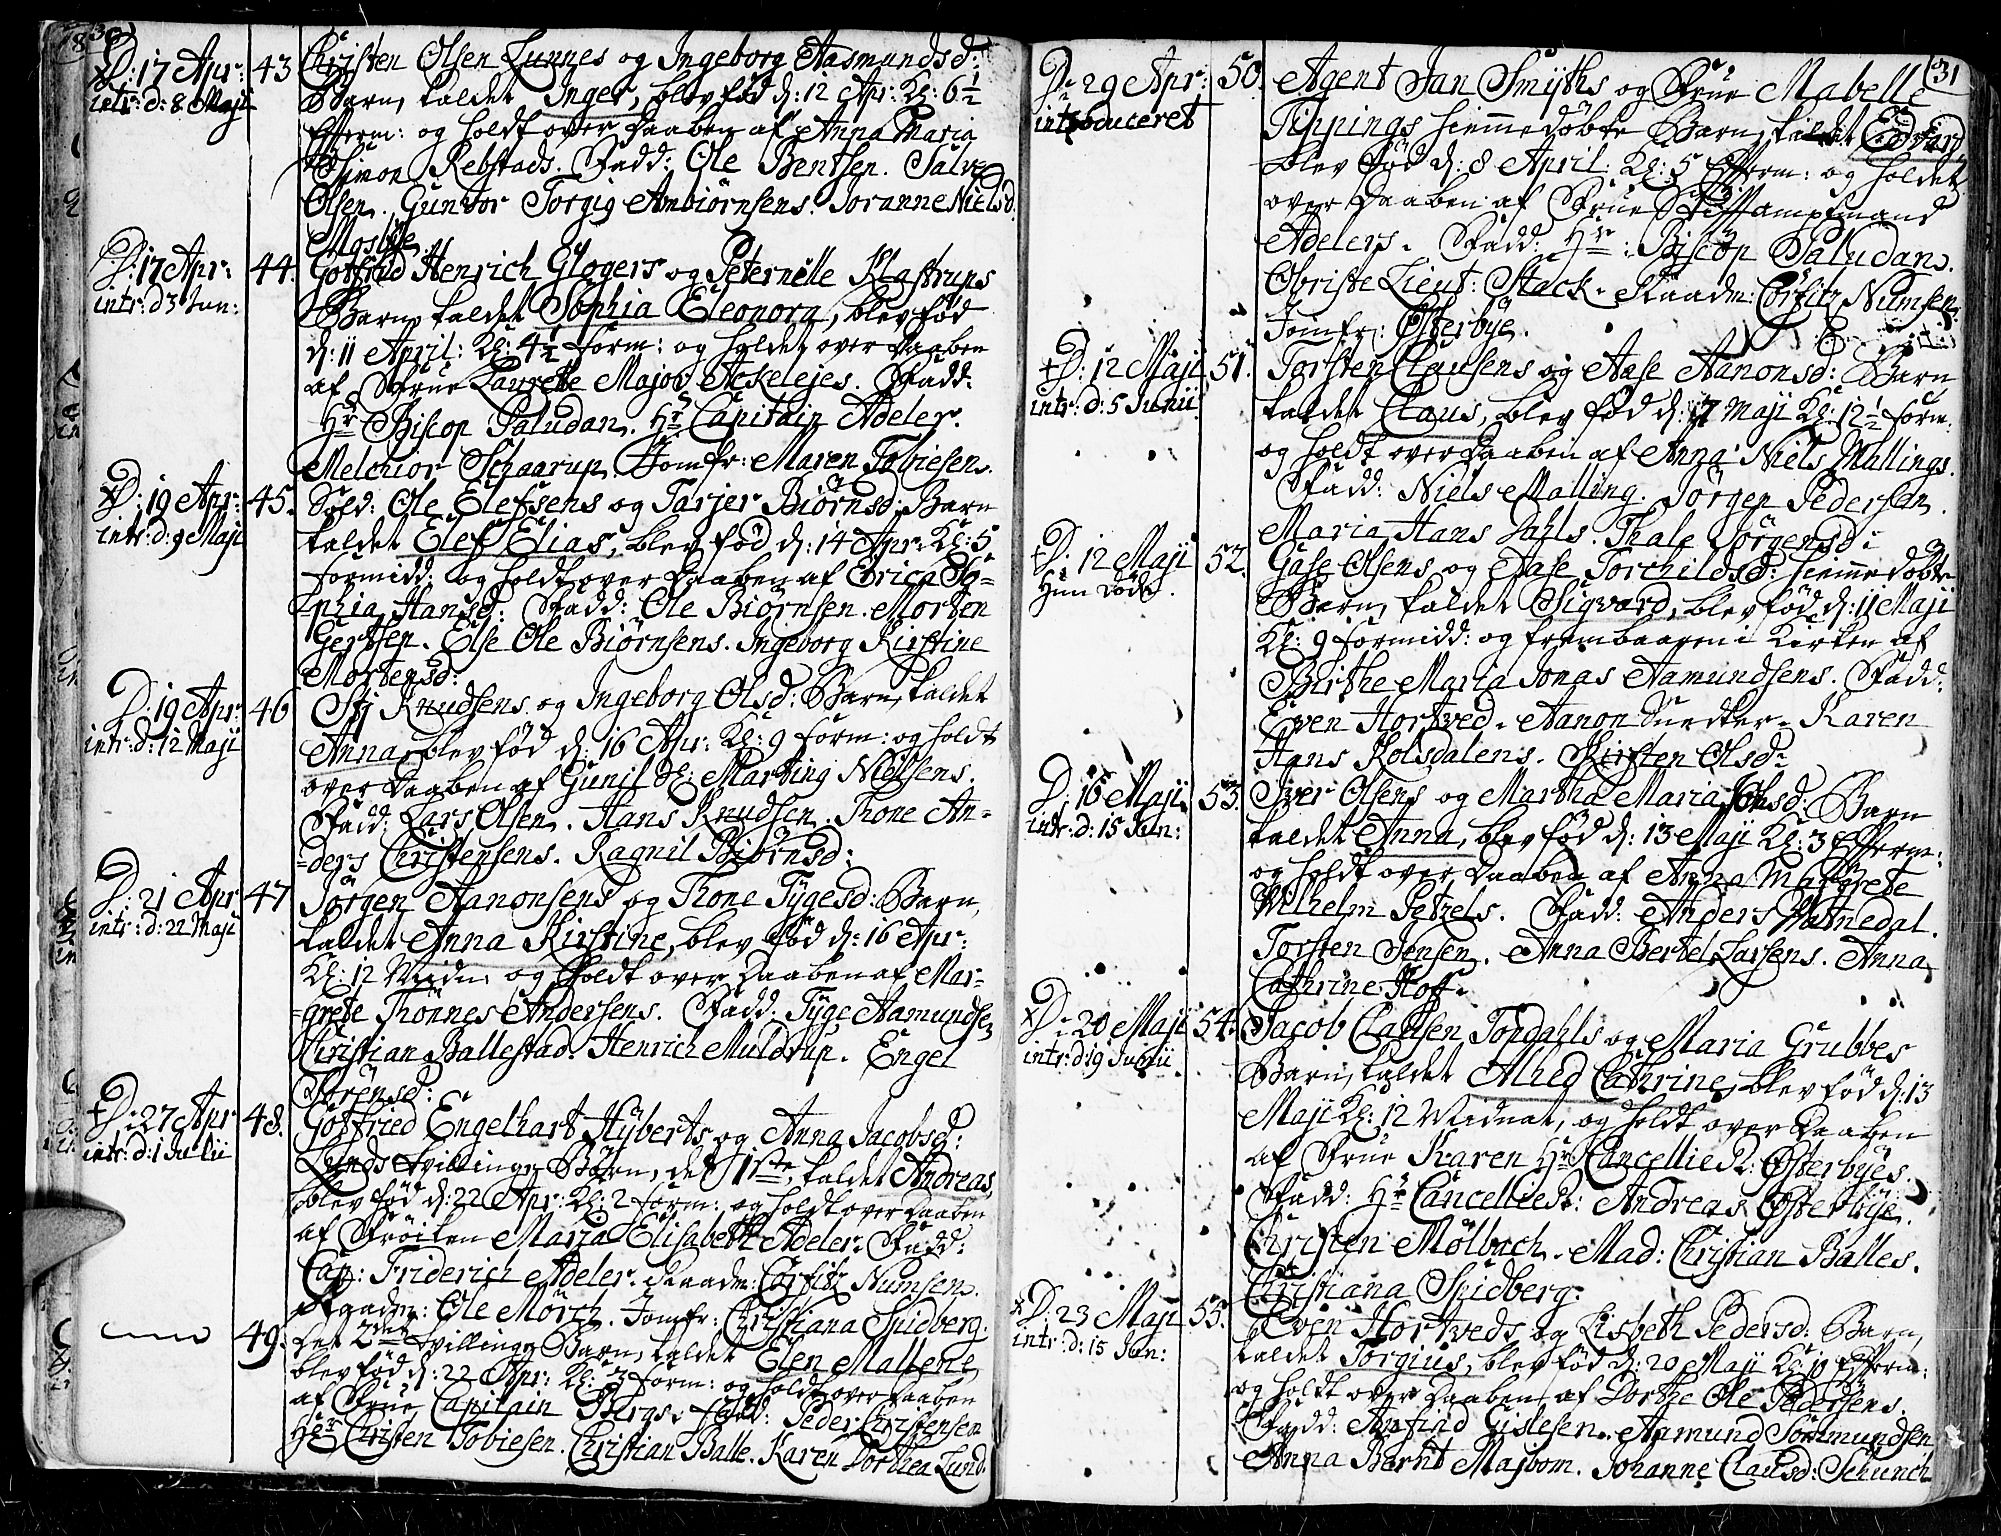 30
D: 17 Apr: 43 Christen Olsen Lunnes og Ingeborg Aasmundsd:
intr: d: 8 Maji Barn, kaldet Inger, blev fød d: 12 Apr: Kl: 6½
Efterm: og holdt over Daaben af Anna Maria
Simon Rebstads. Fadd: Ole Bentsen. Salve
Olsen. Gunvor Torgig Anbiørnsens. Joranne Nielsd.
Mosbye.
D: 17 Apr: 44. Gotfried Henrich Glogers og Peternelle Klastrups
intr: d 3 Jun: Barn kaldet Sophia Eleonora, blev fød
d: 11 April: Kl: 4½ form: og holdet over Daaben
af Frue Laurette Major Ackelejes. Fadd:
Hr Biscop Paludan. Hr Capitain Adeler.
Melchior Schaarup. Jomfr: Maren Tobiesens.
D: 19 Apr: 45. Sold: Ole Elefsens og Tarjer Biørnsd: Barn
intr: d: 9 Maji kaldet Elef Elias, blev fød d: 14 Apr: Kl: 5
formidd: og holdt over Daaben af Erica So=
phia Hansd: Fadd: Ole Biørnsen. Morten
Gertsen. Else Ole Biørnsens. Ingeborg Kirstine
Mortensd:
D: 19 Apr: 46 Stj Knudsens og Ingeborg Olsd: Barn, kaldet
intr: d: 12 Maji Anna, blev fød d: 16 Apr: Kl: 9 form: og holdt
over Daaben af Gunil Martinj Nielsens.
Fadd: Lars Olsen. Hans Knudsen. Thone An=
=ders Christensens. Ragnil Biørnsd:
D: 21 Apr 47 Jørgen Aanonsens og Thone Tygesd: Barn,
intr: d: 22 Maji kaldet Anna Kirstine, blev fød d: 16 Apr:
Kl: 12 Midn: og holdt over Daaben af Mar=
=grete Thönnes Andersens. Fadd: Tyge Aamundsen
Christian Ballestad. Henrich Muldrup. Engel
Sørensd:
D: 27 Apr 48. Gotfried Engelhart Hÿberts og Anna Jacobsd:
intr: d: 1 Julii Lunds tvillinge Børn, det 1ste, kaldet Andreas,
blev fød d: 22 Apr: Kl: 2 form: og holdt over Daaben
af Frøiken Maria Elisabeth Adeler. Fadd:
Cap: Friderich Adeler. Raadm: Corfitz Numsen.
Raadm: Ole Mörch. Jomfr: Christiana Spidberg.
49. Det 2det tvillinge Barn, kaldet Elen Mallene,
blev fød d: 22 Apr: Kl: 3 form: og holdt over Daaben
af Frue Capitain Bergs. Fadd: Peder Christensen
Hr Christen Tobiesen. Christian Balle. Karen Dorthea Lund.
31
D: 29 Apr: 50. Agent Jan Smiths og Frue Mabelle
introduceret Tippings hiemmedöbte Barn, kaldet Edvard
blev fød d: 8 April: Kl: 5 Efterm: og holdet
over Daaben af Frue Stiftamptmand
Adelers. Fadd: Hr: Biscop Paludan.
Obriste Lieut: Stack. Raadm: Corfitz Numsen.
Jomfr: Österbye.
D: 12 Maji 51. Torsten Clausens og Aase Aanonsd: Barn
intr: d: 5 Junii kaldet Claus, blev fød d: 7 Maji Kl: 12½ form:
og holdt over Daaben af Anna Niels Mallings.
Fadd: Niels Malling. Jørgen Pedersen.
Maria Hans Dahls. Thale Jörgensd:
D: 12 Maji 52. Gase Olsens og Aase Torchildsd: hiemmedøbte
Hun döde. Barn, kaldet Sigvard, blev fød d: 11 Maji
Kl: 9 formidd: og frembaaren i Kirken af
Birthe Maria Jonas Aamundsens. Fadd:
Even Hortved. Aanon Snedker. Karen
Hans Kolsdalens. Kirsten Olsd:
D: 16 Maji 53. Iver Olsens og Martha Maria Jensd: Barn
intr: d: 15 Jun: kaldet Anna, blev fød d: 13 Maji Kl: 3 Efterm:
og holdt over Daaben af Anna Margrete
Wilhelm Petzels. Fadd: Anders Watnedal.
Torsten Jensen. Anna Bertel Larsens. Anna
Cathrine Hoff.
D: 20 Maji 54. Jacob Clausen Topdahls og Maria Grubbes
intr: d: 19 Junii Barn, kaldet Alhed Cathrine, blev fød d: 13
Maji Kl: 12 Midnat, og holdt over Daaben
af Frue Karen Hr CancellieR: Österbyes.
Fadd: Hr CancellieR: Andreas Österbye.
Christen Mölbach. Mad: Christian Balles.
Christiana Spidberg.
D: 23 Maji 55. Even Hortveds og Lisbeth Pedersd: Barn,
intr: d: 15 Jun: kaldet Torgius, blev fød d: 20 Maji Kl: 10 Efterm:
og holdt over Daaben af Dorthe Ole Pedersens.
Fadd: Anfind Gislesen. Aamund Sömmundsen
Anna Bernt Majbom. Johanne Clausd: Schunch